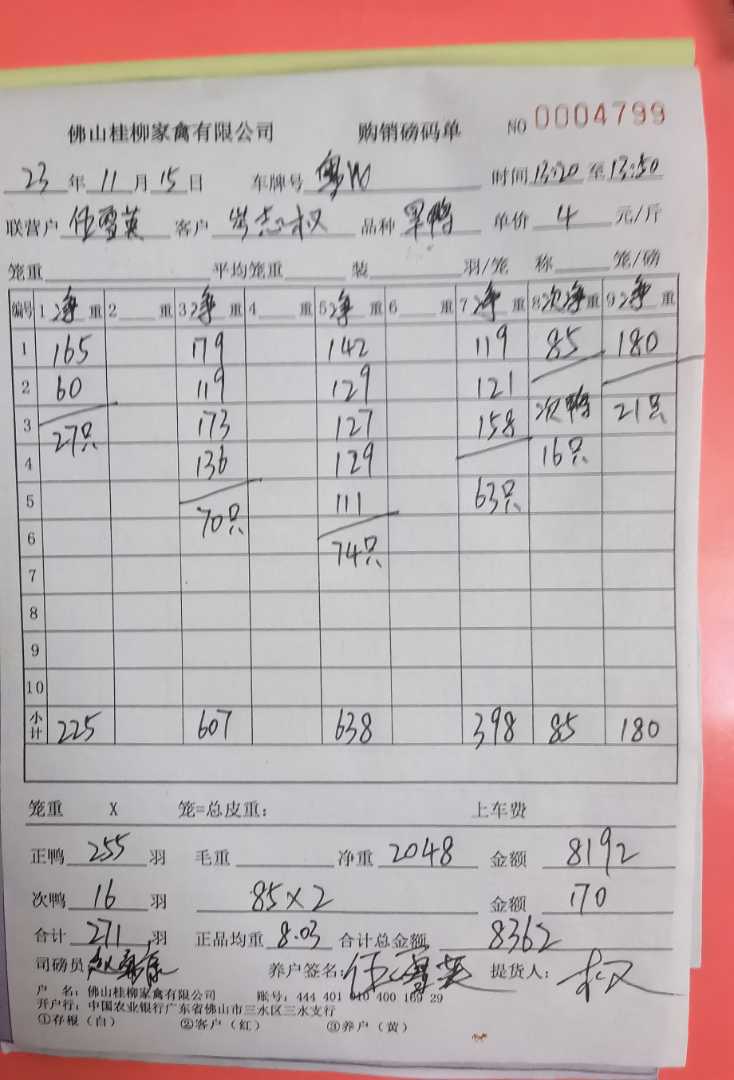 佛山桂柳家禽有限公司 购销磅码单 NO 0004799
23 年 11 月 15 日 车牌号 粤W 时间 13:20 至 13:50
联营户 伍雪英 客户 岑志权 品种 旱鸭 单价 4 元/斤
笼重 平均笼重 装 羽/笼 称 笼/磅
编号 1 净 重 2 重 3 净 重 4 重 5 净 重 6 重 7 净 重 8 次净 重 9 净 重
1 165 179 142 119 85 180
2 60 119 129 121
3 27只 173 127 158 次鸭 21只
4 136 129 16只
5 111 63只
6 70只
7 74只
8
9
10
小计 225 607 638 398 85 180
笼重 X 笼=总皮重: 上车费
正鸭 255 羽 毛重 净重 2048 金额 8192
次鸭 16 羽 85×2 金额 170
合计 271 羽 正品均重 8.03 合计总金额 8362
司磅员 养户签名: 伍雪英 提货人: 权
户 名: 佛山桂柳家禽有限公司 账号: 444 401 010 400 169 29
开户行: 中国农业银行广东省佛山市三水区三水支行
①存根（白） ②客户（红） ③养户（黄）